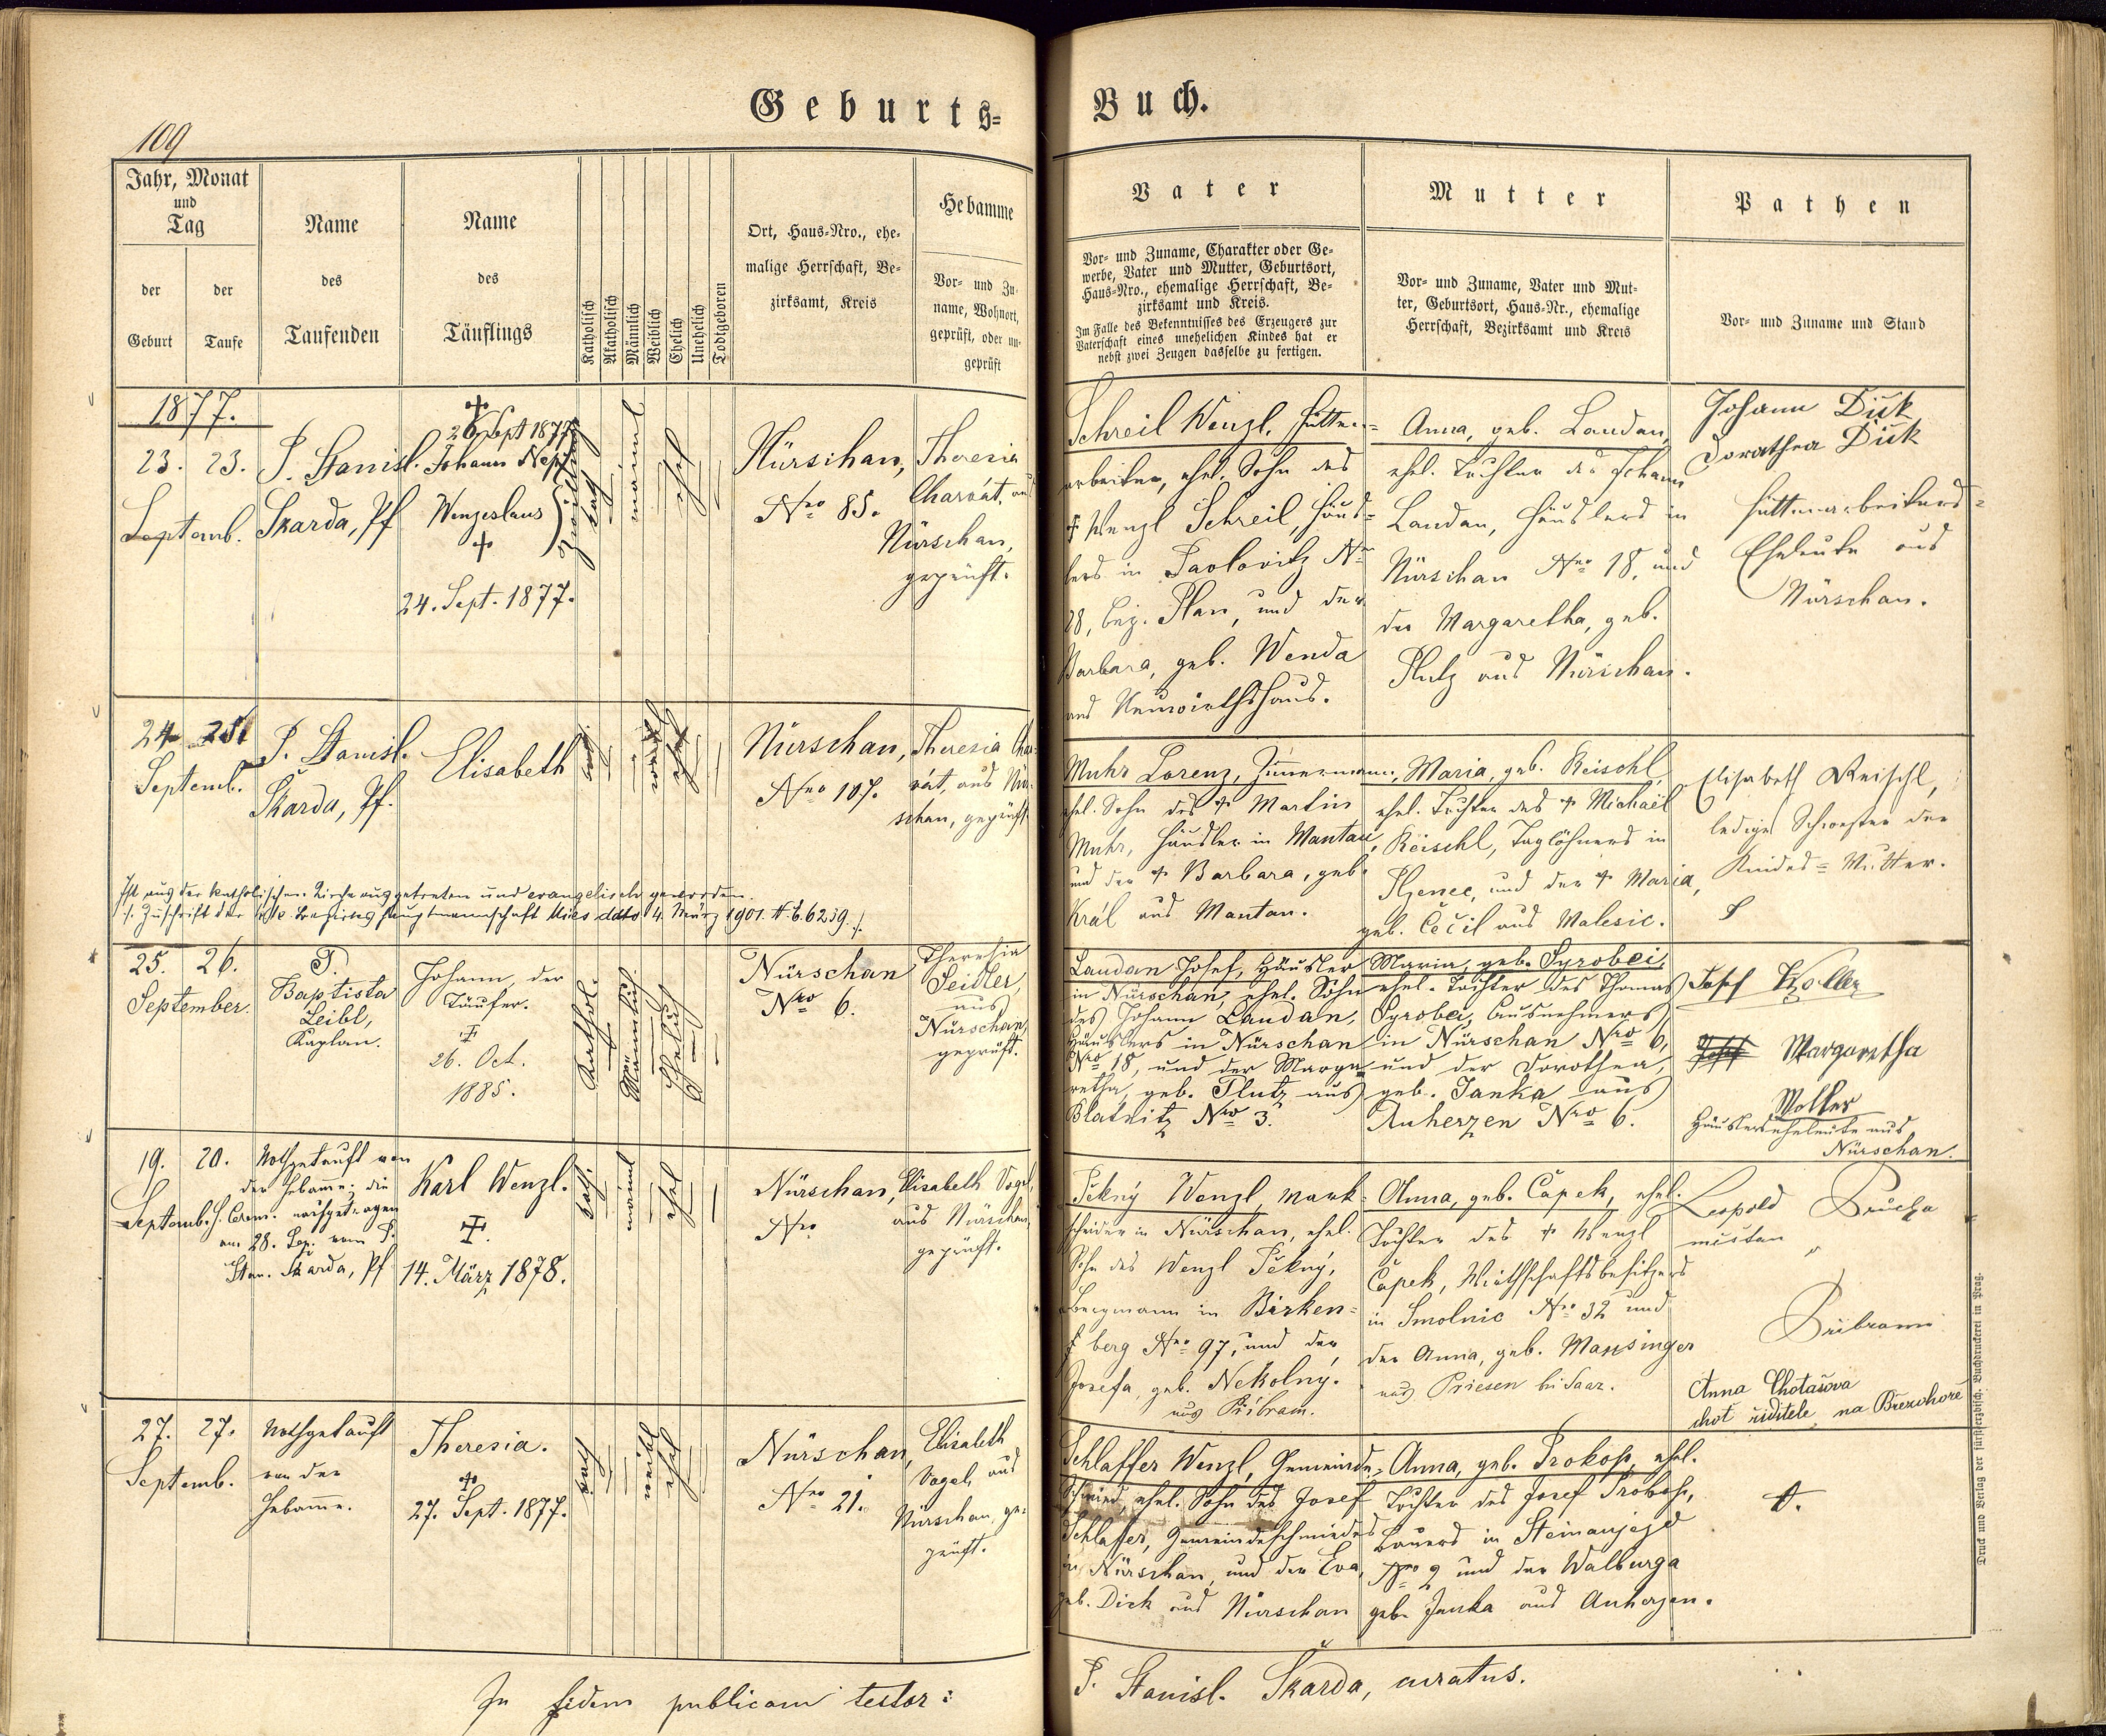 Geburts=
Buch.
109
Jahr, Monat
und
Tag
der
Geburt
der
Taufe
Name
des
Taufenden
Name
des
Täuflings
Katholisch
Akatholisch
Männlich
Weiblich
Ehelich
Unehelich
Todtgeboren
Ort, Haus-Nro., ehe-
malige Herrschaft, Be-
zirksamt, Kreis
Hebamme
Vor- und Zu-
name, Wohnort,
geprüft, oder un-
geprüft
Vater
Vor- und Zuname, Charakter oder Ge-
werbe, Vater und Mutter, Geburtsort,
Haus-Nro., ehemalige Herrschaft, Be-
zirksamt und Kreis.
Im Falle des Bekenntnisses des Erzeugers zur
Vaterschaft eines unehelichen Kindes hat er
nebst zwei Zeugen dasselbe zu fertigen.
Mutter
Vor- und Zuname, Vater und Mut-
ter, Geburtsort, Haus-Nr., ehemalige
Herrschaft, Bezirksamt und Kreis
Pathen
Vor- und Zuname und Stand
1877.
23. 23.
Septemb.
P. Stanisl.
Skarda, Pf
26 Sept 1877
Johann Nep.
Wenzeslaus
24. Sept. 1877.
Zwillinge
kath
männl
ehel
Nürschan,
Nro 85.
Theresia
Charvát, aus
Nürschan,
geprüft.
Schreil Wenzl, Hütten=
arbeiter, ehel. Sohn des
Wenzl Schreil, Häus=
lers in Pavlovitz Nro
28, bez. Plan, und der
Barbara, geb. Wenda
aus Neuwirthshaus.
Anna, geb. Landan,
ehel. Tochter des Johann
Landan, Häuslers in
Nürschan Nro 18, und
der Margaretha, geb.
Plutz aus Nürschan.
Johann Dück
Dorathea Dück
Hüttenarbeiters=
Eheleute aus
Nürschan.
24 25
Septemb.
P. Stanisl.
Skarda, Pf.
Elisabeth
kath
weibl
ehel
Nürschan,
Nro 107.
Theresia Char=
vát, aus Nür=
schan, geprüft.
Muhr Lorenz, Zimmermann,
ehel. Sohn des † Martin
Muhr, Häusler in Mantau,
und der † Barbara, geb.
Král aus Mantau.
Maria, geb. Reischl,
ehel. Tochter des † Michael
Reischl, Taglöhners in
und der † Maria,
geb. Čečil aus Malesic.
Elisabeth Reischl,
ledige Schwester der
Kindes=Mutter.
Ist aus der katholischen Kirche ausgetreten und evangelisch geworden.
/: Zuschrift der k.k. Bezirkshauptmannschaft Mies ddto 4. März 1901. N.E. 6239 :/
25. 26.
September.
P.
Baptista
Leibl,
Kaplan.
Johann der
Täufer.
26. Oct.
1885.
Kathol.
Männlich
Ehelich
Nürschan
Nro 6.
Theresia
Seidler,
aus
Nürschan,
geprüft.
Landan Josef, Häusler
in Nürschan, ehel. Sohn
des Johann Landan,
Häuslers in Nürschan
Nro 18, und der Marga=
retha, geb. Plutz aus
Blatnitz Nro 3.
Maria, geb. Syrobei,
ehel. Tochter des Thomas
Syrobei, Ausnehmers
in Nürschan Nro 6,
und der Dorothea,
geb. Janka aus
Auherzen Nro 6.
Josef Woller
Josef Margaretha
Woller
Häuslerseheleute aus
Nürschan.
19. 20.
Septemb.
Nothgetauft von
der Hebamme; die
h. Cerem. nachgetragen
am 28. Sep. vom P.
Stan. Skarda, Pf
Karl Wenzl.
14. März 1878.
kath
männl
ehel
Nürschan,
Nro
Elisabeth Vogel,
aus Nürschan,
geprüft.
Pěkný Wenzl, Mark=
scheider in Nürschan, ehel.
Sohn des Wenzl Pěkný,
Bergmann in Birken=
berg Nro 97, und der
Josefa, geb. Nekolny.
aus Přibram.
Anna, geb. Čapek, ehel.
Tochter des † Wenzl
Čapek, Wirthschaftsbesitzers
in Smolnic Nro 32 und
der Anna, geb. Mansinger
aus Priesen bei Saaz.
Leopold Průcha
Pribrami
Anna Chotašova
choť ředitele na Březohoře
27. 27.
Septemb.
Nothgetauft
von der
Hebamme.
Theresia.
27. Sept. 1877.
kath
weibl
ehel
Nürschan,
Nro 21.
Elisabeth
Vogel, aus
Nürschan, ge=
prüft.
Schlaffer Wenzl, Gemeinde=
Schmied, ehel. Sohn des Josef
Schlaffer, Gemeindeschmiedes
in Nürschan, und der Eva,
geb. Dick aus Nürschan
Anna, geb. Prokop, ehel.
Tochter des Josef Prokop,
Bauers in Steinaujezd
Nro 9 und der Walburga
geb. Janka aus Auherzen.
In fidem publicam testor:
P. Stanisl. Škarda, curatus.